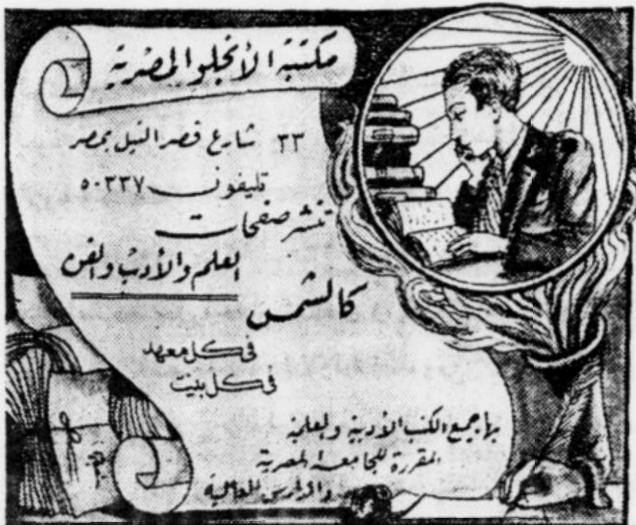 مكتبة الأنجلو المصرية
٣٣ شارع قصر النيل بمصر
تليفون ٥٠٣٣٧
تنشر صفحات
العلم والأدب والفن
كالشمس
فى كل معهد
فى كل بيت
بها جميع الكتب الأدبية والعلمية
المقررة للجامعة المصرية
والمدارس العالية